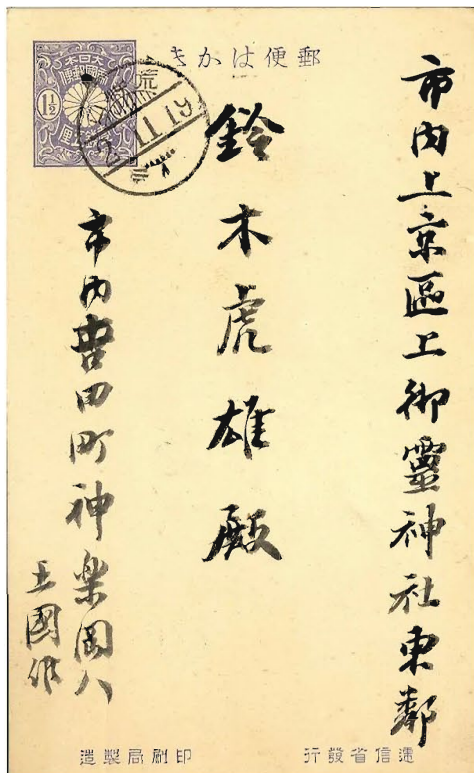 郵便はかき
大日本帝國郵便
1½
2.11.19
市内上京區上御靈神社東鄰
鈴木虎雄殿
市内吉田町神楽岡八
王國維
遞信省發行
印刷局製造